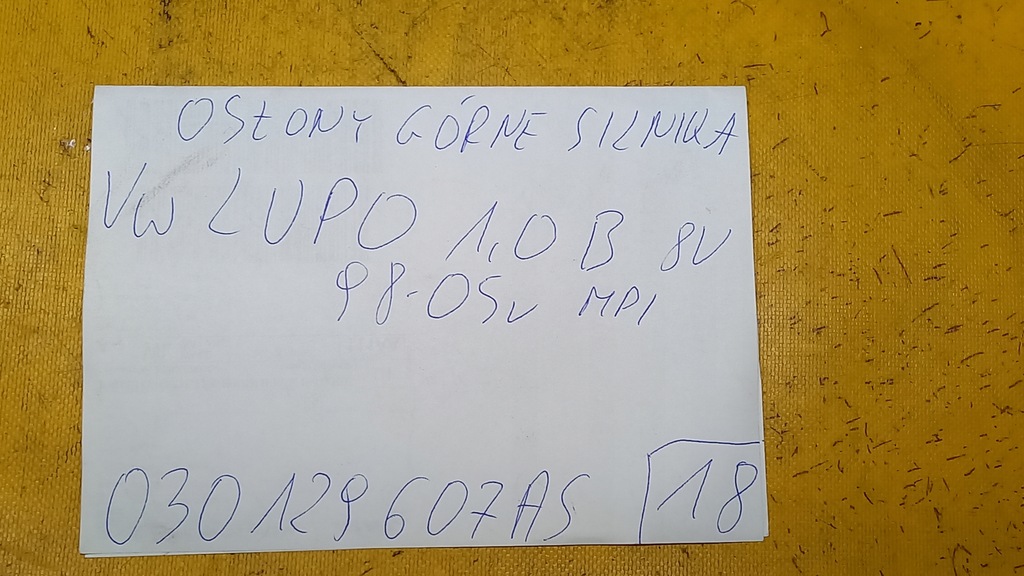 OSŁONY GÓRNE SILNIKA
VW LUPO 1,0 B 8V
98-05r MPI
030129607AS
18